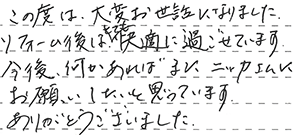 この度は、大変お世話になりました。
リフォーム後はとても快適に過ごせています。
今後、何かあればまた ニッカホームに
お願いしたいと思っています。
ありがとうございました。